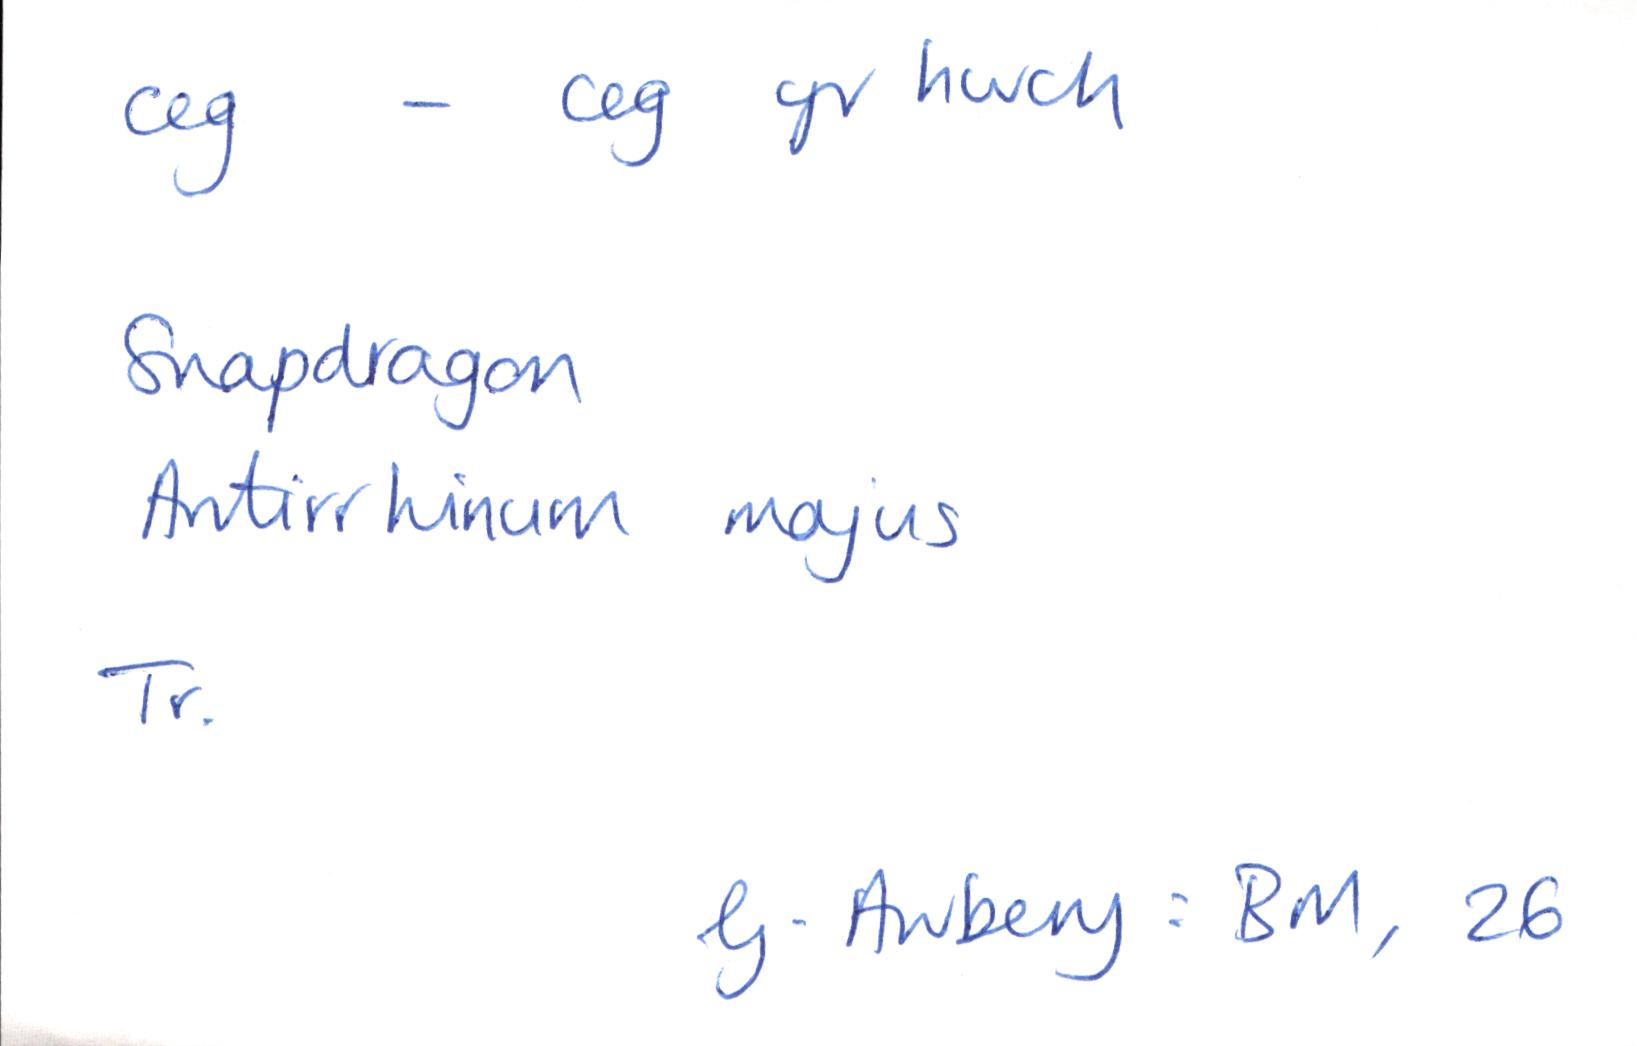 ceg – ceg yr hwch
Snapdragon
Antirrhinum majus
Tr.
G. Awbery : BM, 26